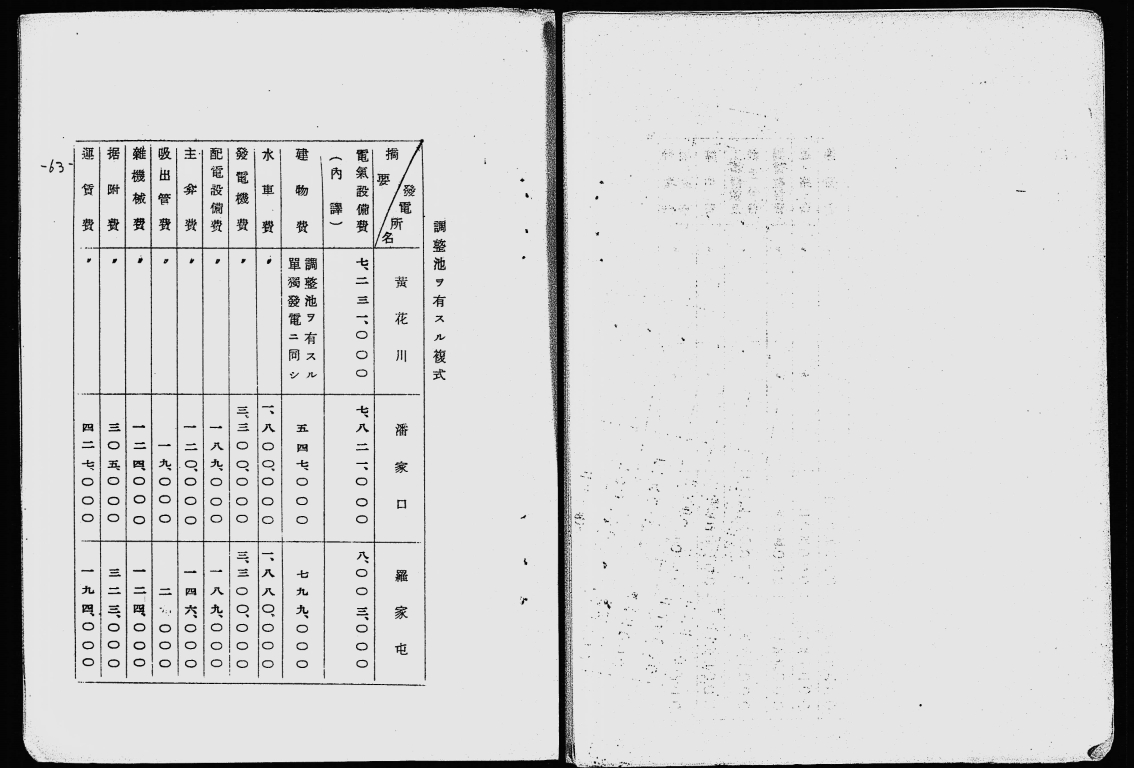 調整池ヲ有スル複式
摘要 發電所名 黃花川 潘家口 羅家屯
電氣設備費 七、二三一、〇〇〇 七、八二一、〇〇〇 八、〇〇三、〇〇〇
(內譯)
建物費 調整池ヲ有スル單獨發電ニ同シ 五四七、〇〇〇 七九九、〇〇〇
水車費 〃 一、八〇〇、〇〇〇 一、八八〇、〇〇〇
發電機費 〃 三、三〇〇、〇〇〇 三、三〇〇、〇〇〇
配電設備費 〃 一八九、〇〇〇 一八九、〇〇〇
主弇費 〃 一二〇、〇〇〇 一四六、〇〇〇
吸出管費 〃 一九、〇〇〇 二 〇〇〇
雜機械費 〃 一二四、〇〇〇 一二四、〇〇〇
据附費 〃 三〇五、〇〇〇 三二三、〇〇〇
運賃費 〃 四二七、〇〇〇 一九四、〇〇〇
-63-